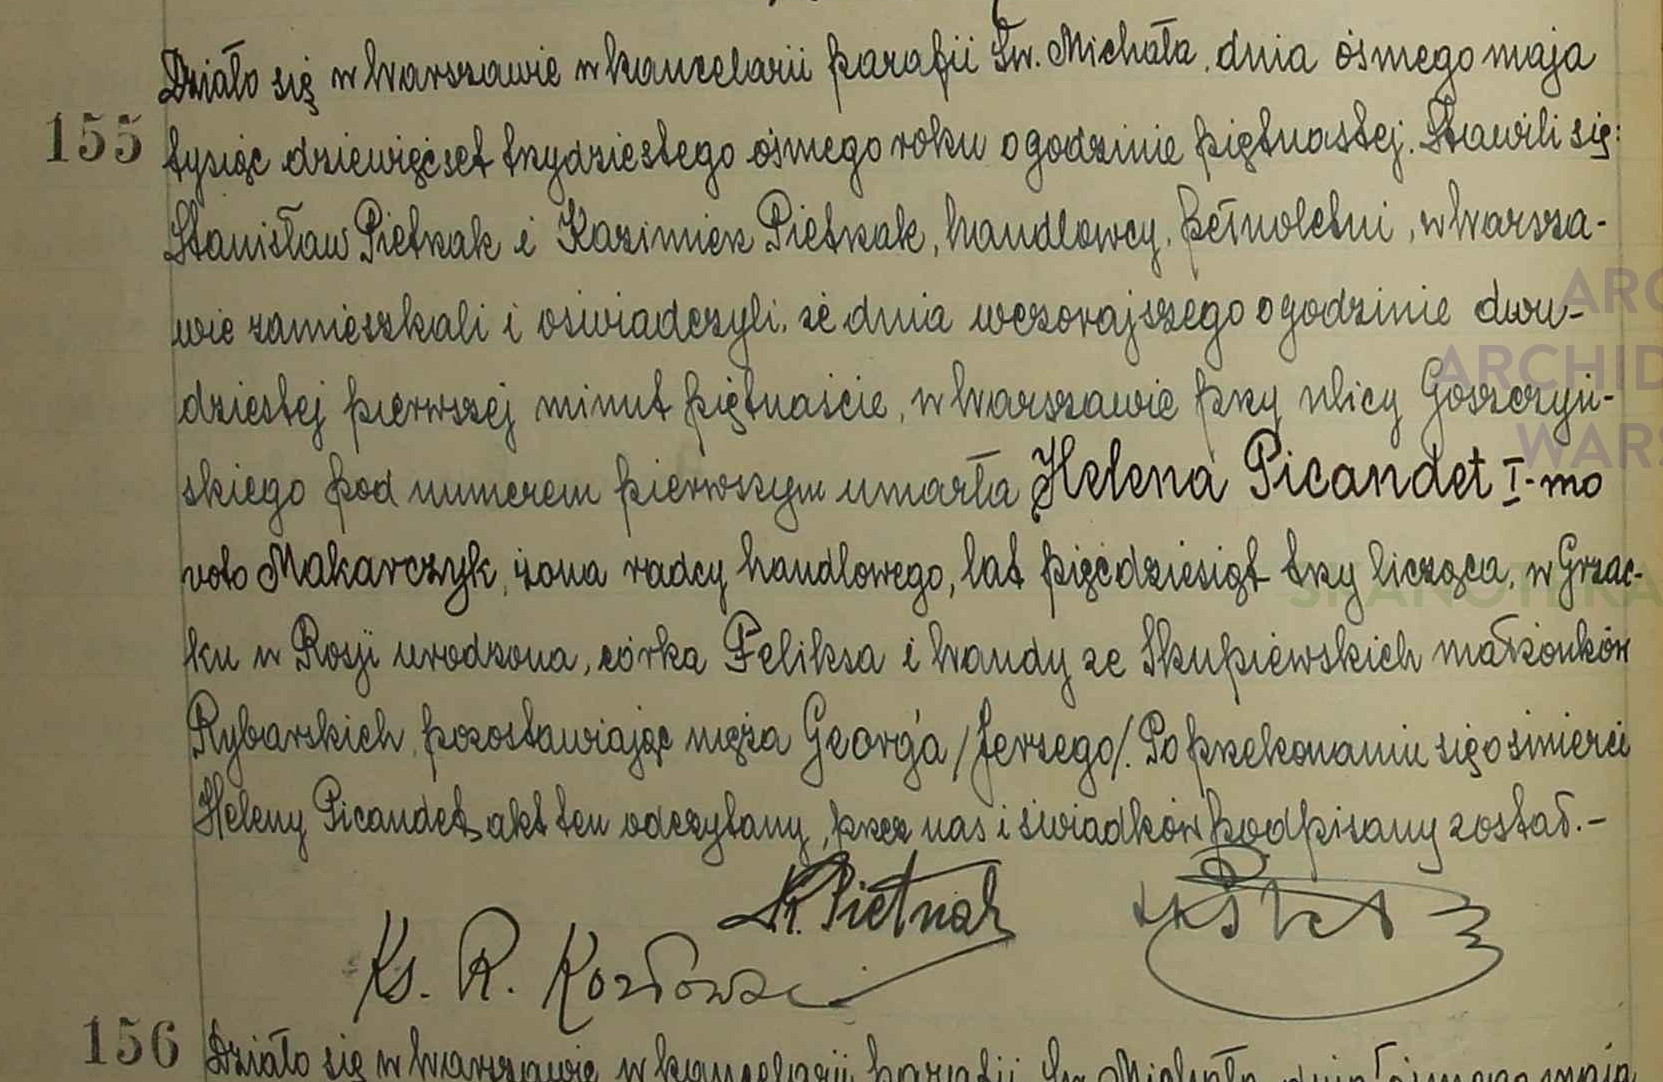 Działo się w Warszawie w kancelarii parafii Św. Michała, dnia ósmego maja
155 tysiąc dziewięćset trzydziestego ósmego roku o godzinie piętnastej. Stawili się:
Stanisław Pietrzak i Kazimierz Pietrzak, handlowcy, pełnoletni, w Warsza-
wie zamieszkali i oświadczyli, że dnia wczorajszego o godzinie dwu-
dziestej pierwszej minut piętnaście, w Warszawie przy ulicy Goszczyń-
skiego pod numerem pierwszym umarła Helena Picandet I-mo
voto Makarczyk, żona radcy handlowego, lat pięćdziesiąt trzy licząca, w Grzac-
ku w Rosji urodzona, córka Feliksa i Wandy ze Skupiewskich małżonków
Rybarskich, pozostawiając męża Georg'a /Jerzego/. Po przekonaniu się o śmierci
Heleny Picandet, akt ten odczytany, przez nas i świadków podpisany został.-
Pietrzak
Ks. R. Kozłowski
156 Działo się w Warszawie w kancelarii parafii Św. Michała, dnia ósmego maja
ARC
ARCHID
WARS